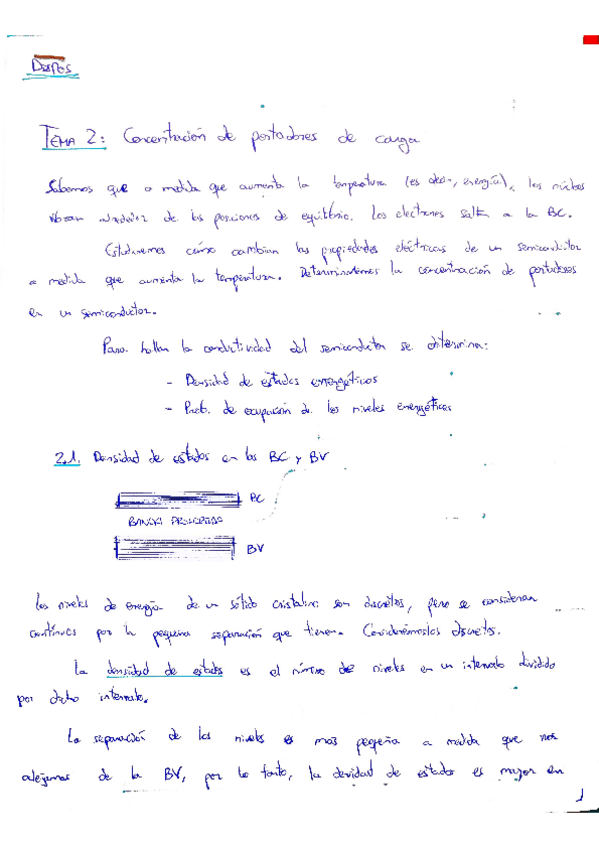 TEMA 2: Concentración de portadores de carga
Sabemos que a medida que aumenta la temperatura (es decir, energía), los núcleos
vibran alrededor de las posiciones de equilibrio. Los electrones saltan a la BC.
Estudiaremos cómo cambian las propiedades eléctricas de un semiconductor
a medida que aumenta la temperatura. Determinaremos la concentración de portadores
en un semiconductor.
Para hallar la conductividad del semiconductor se determina:
- Densidad de estados energéticos
- Prob. de ocupación de los niveles energéticos
2.1. Densidad de estados en las BC y BV
BC
BANDA PROHIBIDA
BV
Los niveles de energía de un sólido cristalino son discretos, pero se consideran
continuos por la pequeña separación que tienen. Considerémoslos discretos.
La densidad de estados es el número de niveles en un intervalo dividido
por dicho intervalo.
La separación de los niveles es más pequeña a medida que nos
alejamos de la BV, por lo tanto, la densidad de estados es mayor en
1